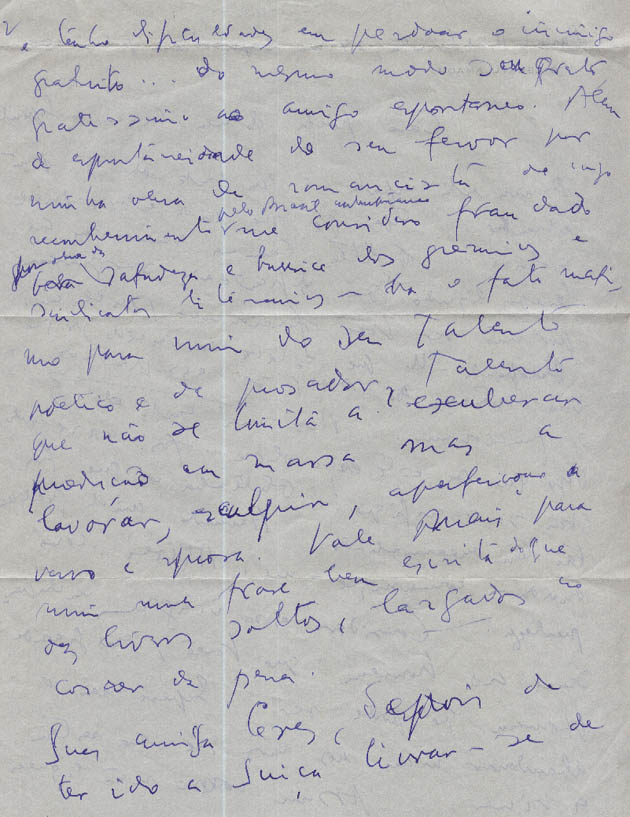 e tenho dificuldades em perdoar o inimigo
gratuito... do mesmo modo sou grato
gratissimo ao amigo espontaneo. Alem
de espontaneidade do seu fervor por
minha obra de romancista de cujo
pelo Brasil
reconhecimento me considero fraudado
pela safadeza e burrice dos gremios e
sindicatos literarios — ha o fato
mo para mim do seu Talento
poetico e de prosador, Talento
que não se limita a exuberar
produção em massa mas a
lavorar, esculpir, aperfeiçoar o
verso e prosa. Vale mais para
mim uma frase bem escrita do que
dez livros soltos, largados ao
correr da pena.
Sua amiga Ceres, depois de
ter ido a Suiça livrar-se de